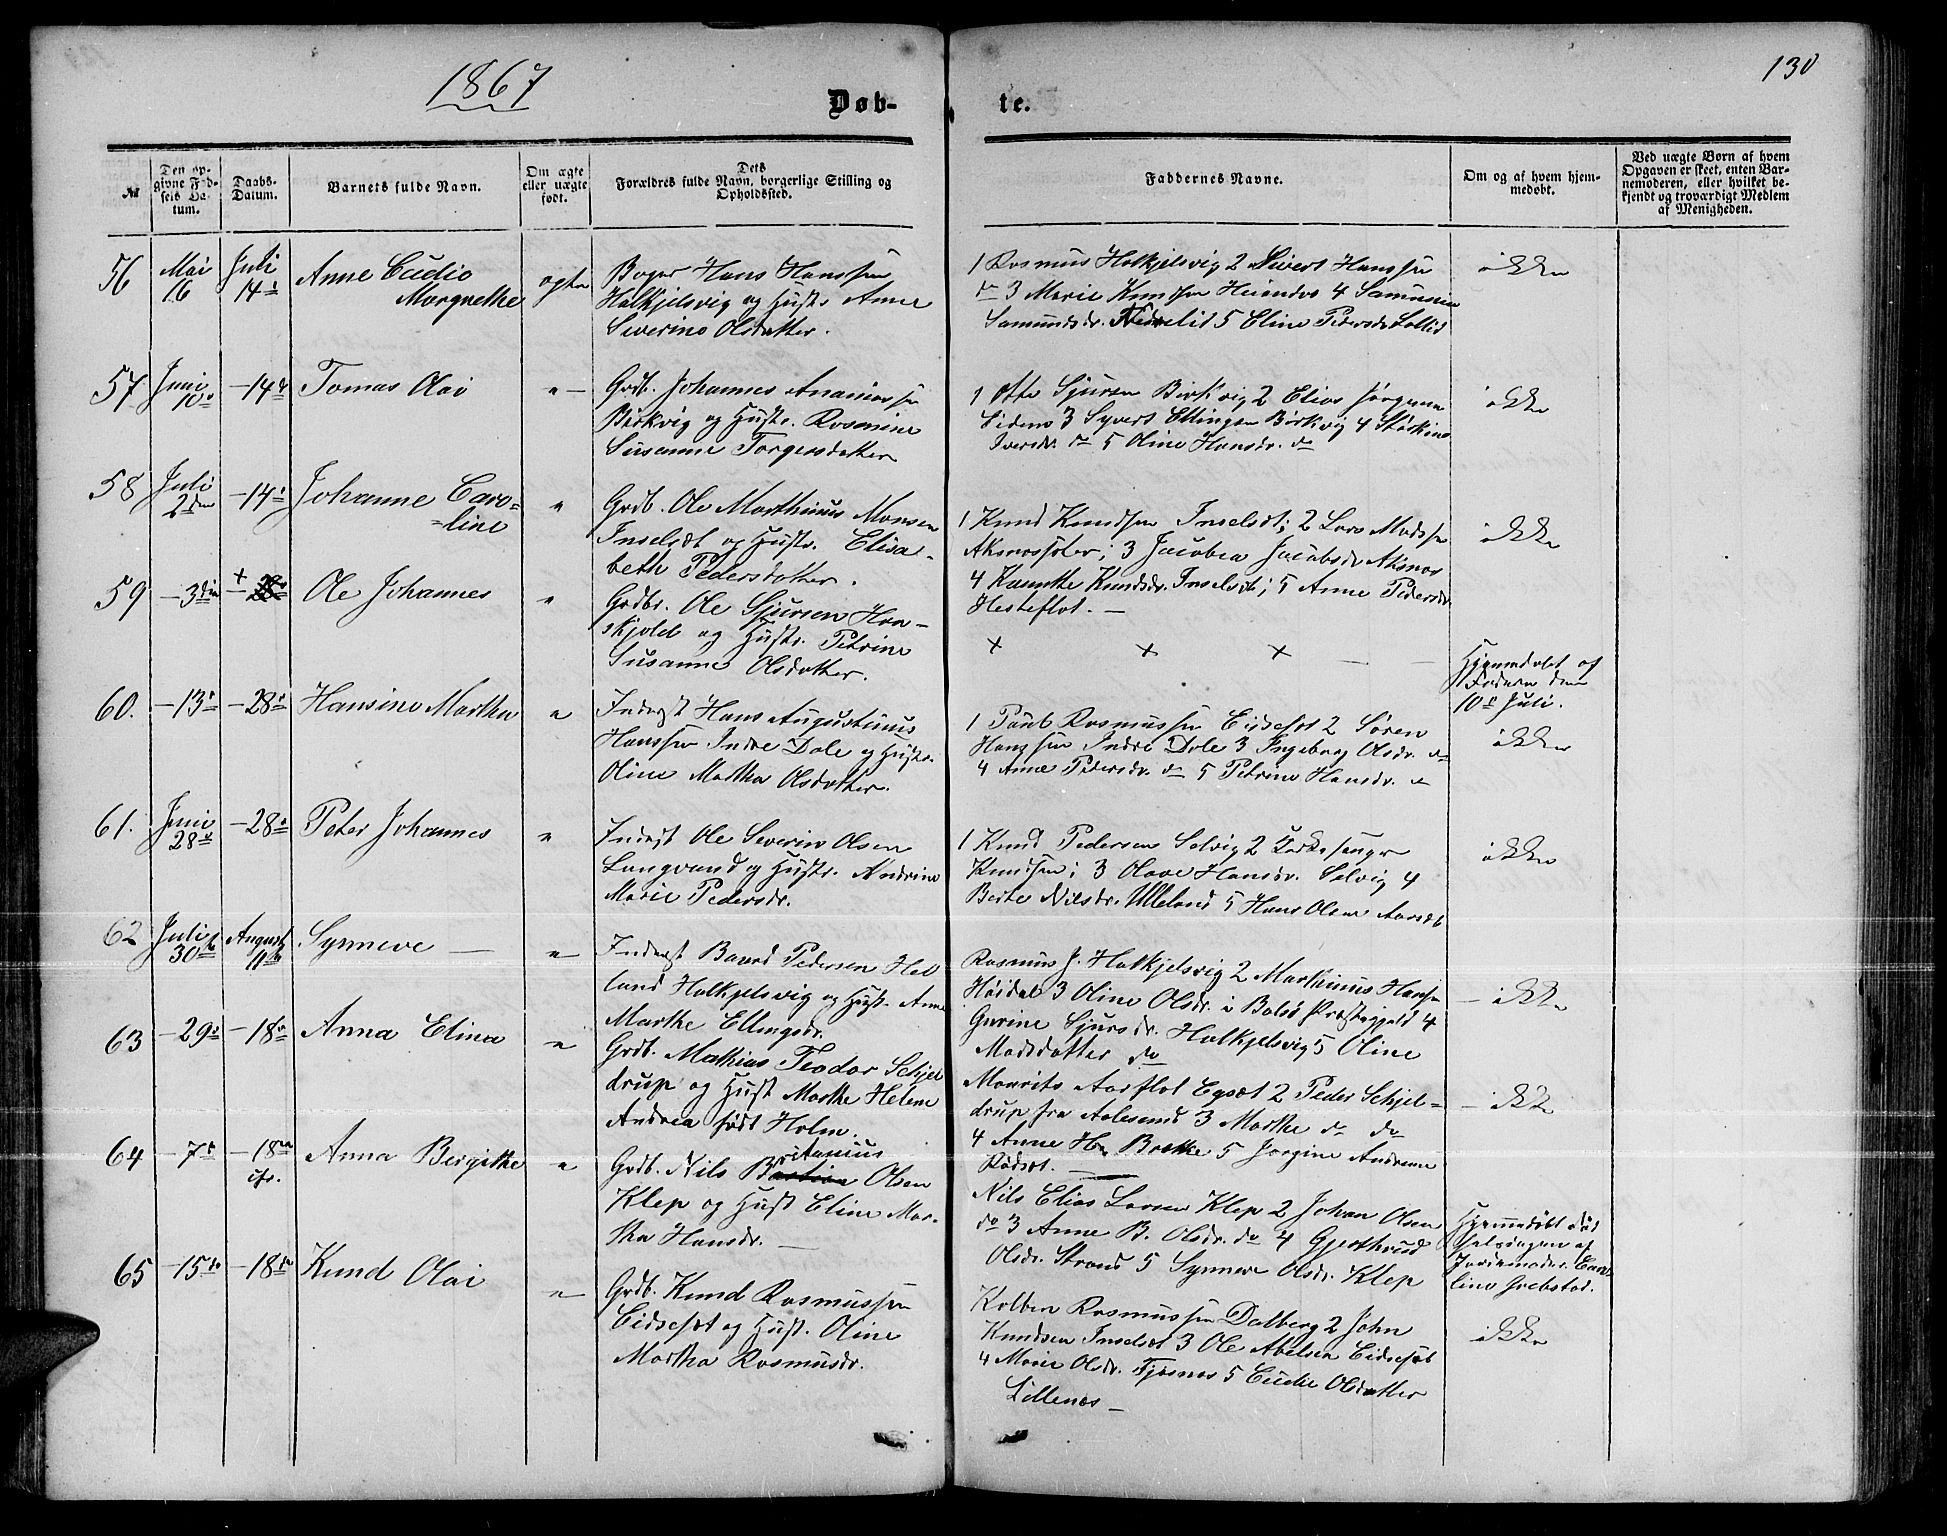 1867
Døb-
te.
130
№
Den op-
givne Fød-
sels Da-
tum.
Daabs-
Datum.
Barnets fulde Navn.
Om ægte
eller uægte
født.
Dets
Forældres fulde Navn, borgerlige Stilling og
Opholdssted.
Faddernes Navne.
Om og af hvem hjem-
medøbt.
Ved uægte Børn af hvem
Opgaven er skeet, enten Bar-
nemoderen, eller hvilket be-
kjendt og troværdigt Medlem
af Menigheden.
56
Mai
16
Juli
14
Anne
Margrethe
ægte
Hans Hanssen
Halkjelsvig og Hustr. Anne
Severine Olsdatter.
1 Rasmus Halkjelsvig 2 Sivert Hanssen
3 Marie Knutsen 4
5 Eline Pedersdr
ikke
57
Juni
10
-14
Tomas Olai
Grdb. Johannes Ananiassen
Birkvig og Hustr. Rasmine
Susanne Torgersdatter
1 Otte Sjursen Birkvig 2 Elias Jørgensen
3 Syvert Ellingsen Birkvig 4
Iversdr. do 5 Oline Hansdr. do
ikke
58
Juli
2den
-14
Johanne Caro=
=line
Grdb. Ole Marthinus Monsen
Inselsæt og Hustr. Elisa-
beth Pedersdatter.
1 Knud Knudsen Inselsæt; 2 Lars Madssen
3 Jacobea Jacobsdr Aksnes
4 Knudsdr. Inselsæt; 5 Anne Pedersdr.
Hesteflot. -
ikke
59
-3die
+
Ole Johannes
Grdbr. Ole Sjursen Haa-
skjold og Hustr. Petrine
Susanne Olsdatter.
+ + + - -
Hjemmedøbt af
Faderen den
10 Juli.
60.
-13
-28
Hansine Martha
Inderst Hans Augustinus
Hanssen Indre Dale og Hustr.
Oline Martha Olsdatter.
1 Paul Rasmussen Eidset 2 Søren
Hanssen Indre Dale 3 Ingeborg Olsdr. do
4 Anne Pedersdr. do 5 Petrine Hansdr. do
ikke
61.
Juni
28
-28
Peter Johannes
Inderst Ole Severin Olsen
Langvand og Hustr. Andrine
Marie Pedersdr.
1 Knud Pedersen Selvig 2 Kirkesanger
Knudsen; 3 Olave Hansdr. Selvig 4
Berte Nilsdr. Ulleland 5 Hans Olsen Aarset
ikke
62
Juli
30
August
11
Synneve -
Inderst Baard Pedersen Hel
land Halkjelsvig og Hustr. Anne
Marthe Ellingsdr.
Rasmus J. Halkjelsvig 2 Marthinus Hansen
Høidal 3 Oline Olsdr. i Bolsø Præstegjeld 4
Gurine Sjursdr. Halkjelsvig 5 Oline
Madsdatter do
- ikke
63
-29
-18
Anna Elina
Grdb. Mathias Teodor Schjel
drup og Hust Marthe Helene
Andrea født Holm.
Mourits Aarflot Egset 2 Peder Schjel=
drup fra Aalesund 3 Marthe do do
4 Anne H. 5 Jørgine Andreine
Rødset. -
- ikke
64
-7
-18
Anna Bergithe
Grdb. Nils Britanius Olsen
Klep og Hust Eline Mar-
tha Hansdr. -
Nils Elias Larsen Klep 2 Johan Olsen
do 3 Anne B. Olsdr. do 4 Gjerthrud
Olsdr. Strand 5 Synneve Olsdr. Klep
Hjemmedøbt ved
af
Jordemoder Caro-
line
65
-15
-18
Knud Olai
Grdb. Knud Rasmussen
Eidset og Hust. Oline
Martha Rasmusdr.
Kolben Rasmussen Dalberg 2 John
Knudsen Inselset 3 Ole Abelsen Eidset
4 Marie Olsdr. 5 Olsdatter
Lillenæs -
ikke